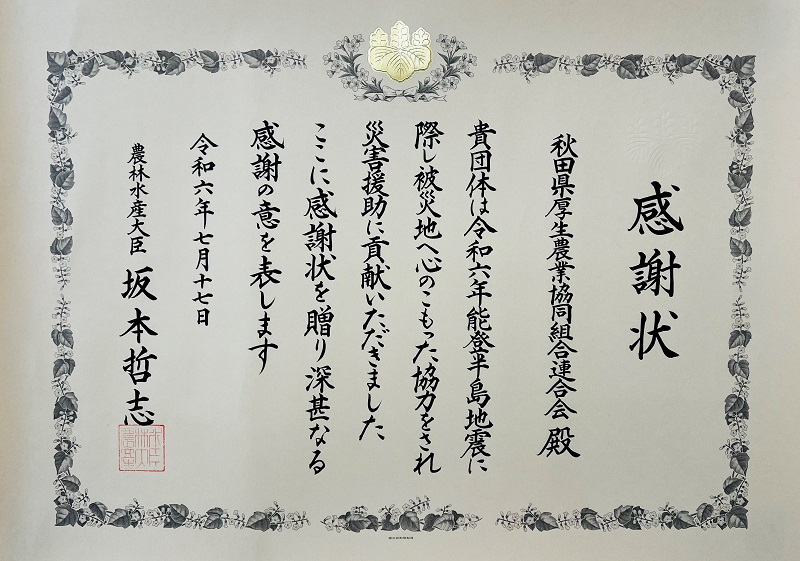 感謝状
秋田県厚生農業協同組合連合会 殿
貴団体は令和六年能登半島地震に
際し被災地へ心のこもった協力をされ
災害援助に貢献いただきました
ここに感謝状を贈り深甚なる
感謝の意を表します
令和六年七月十七日
農林水産大臣 坂本哲志